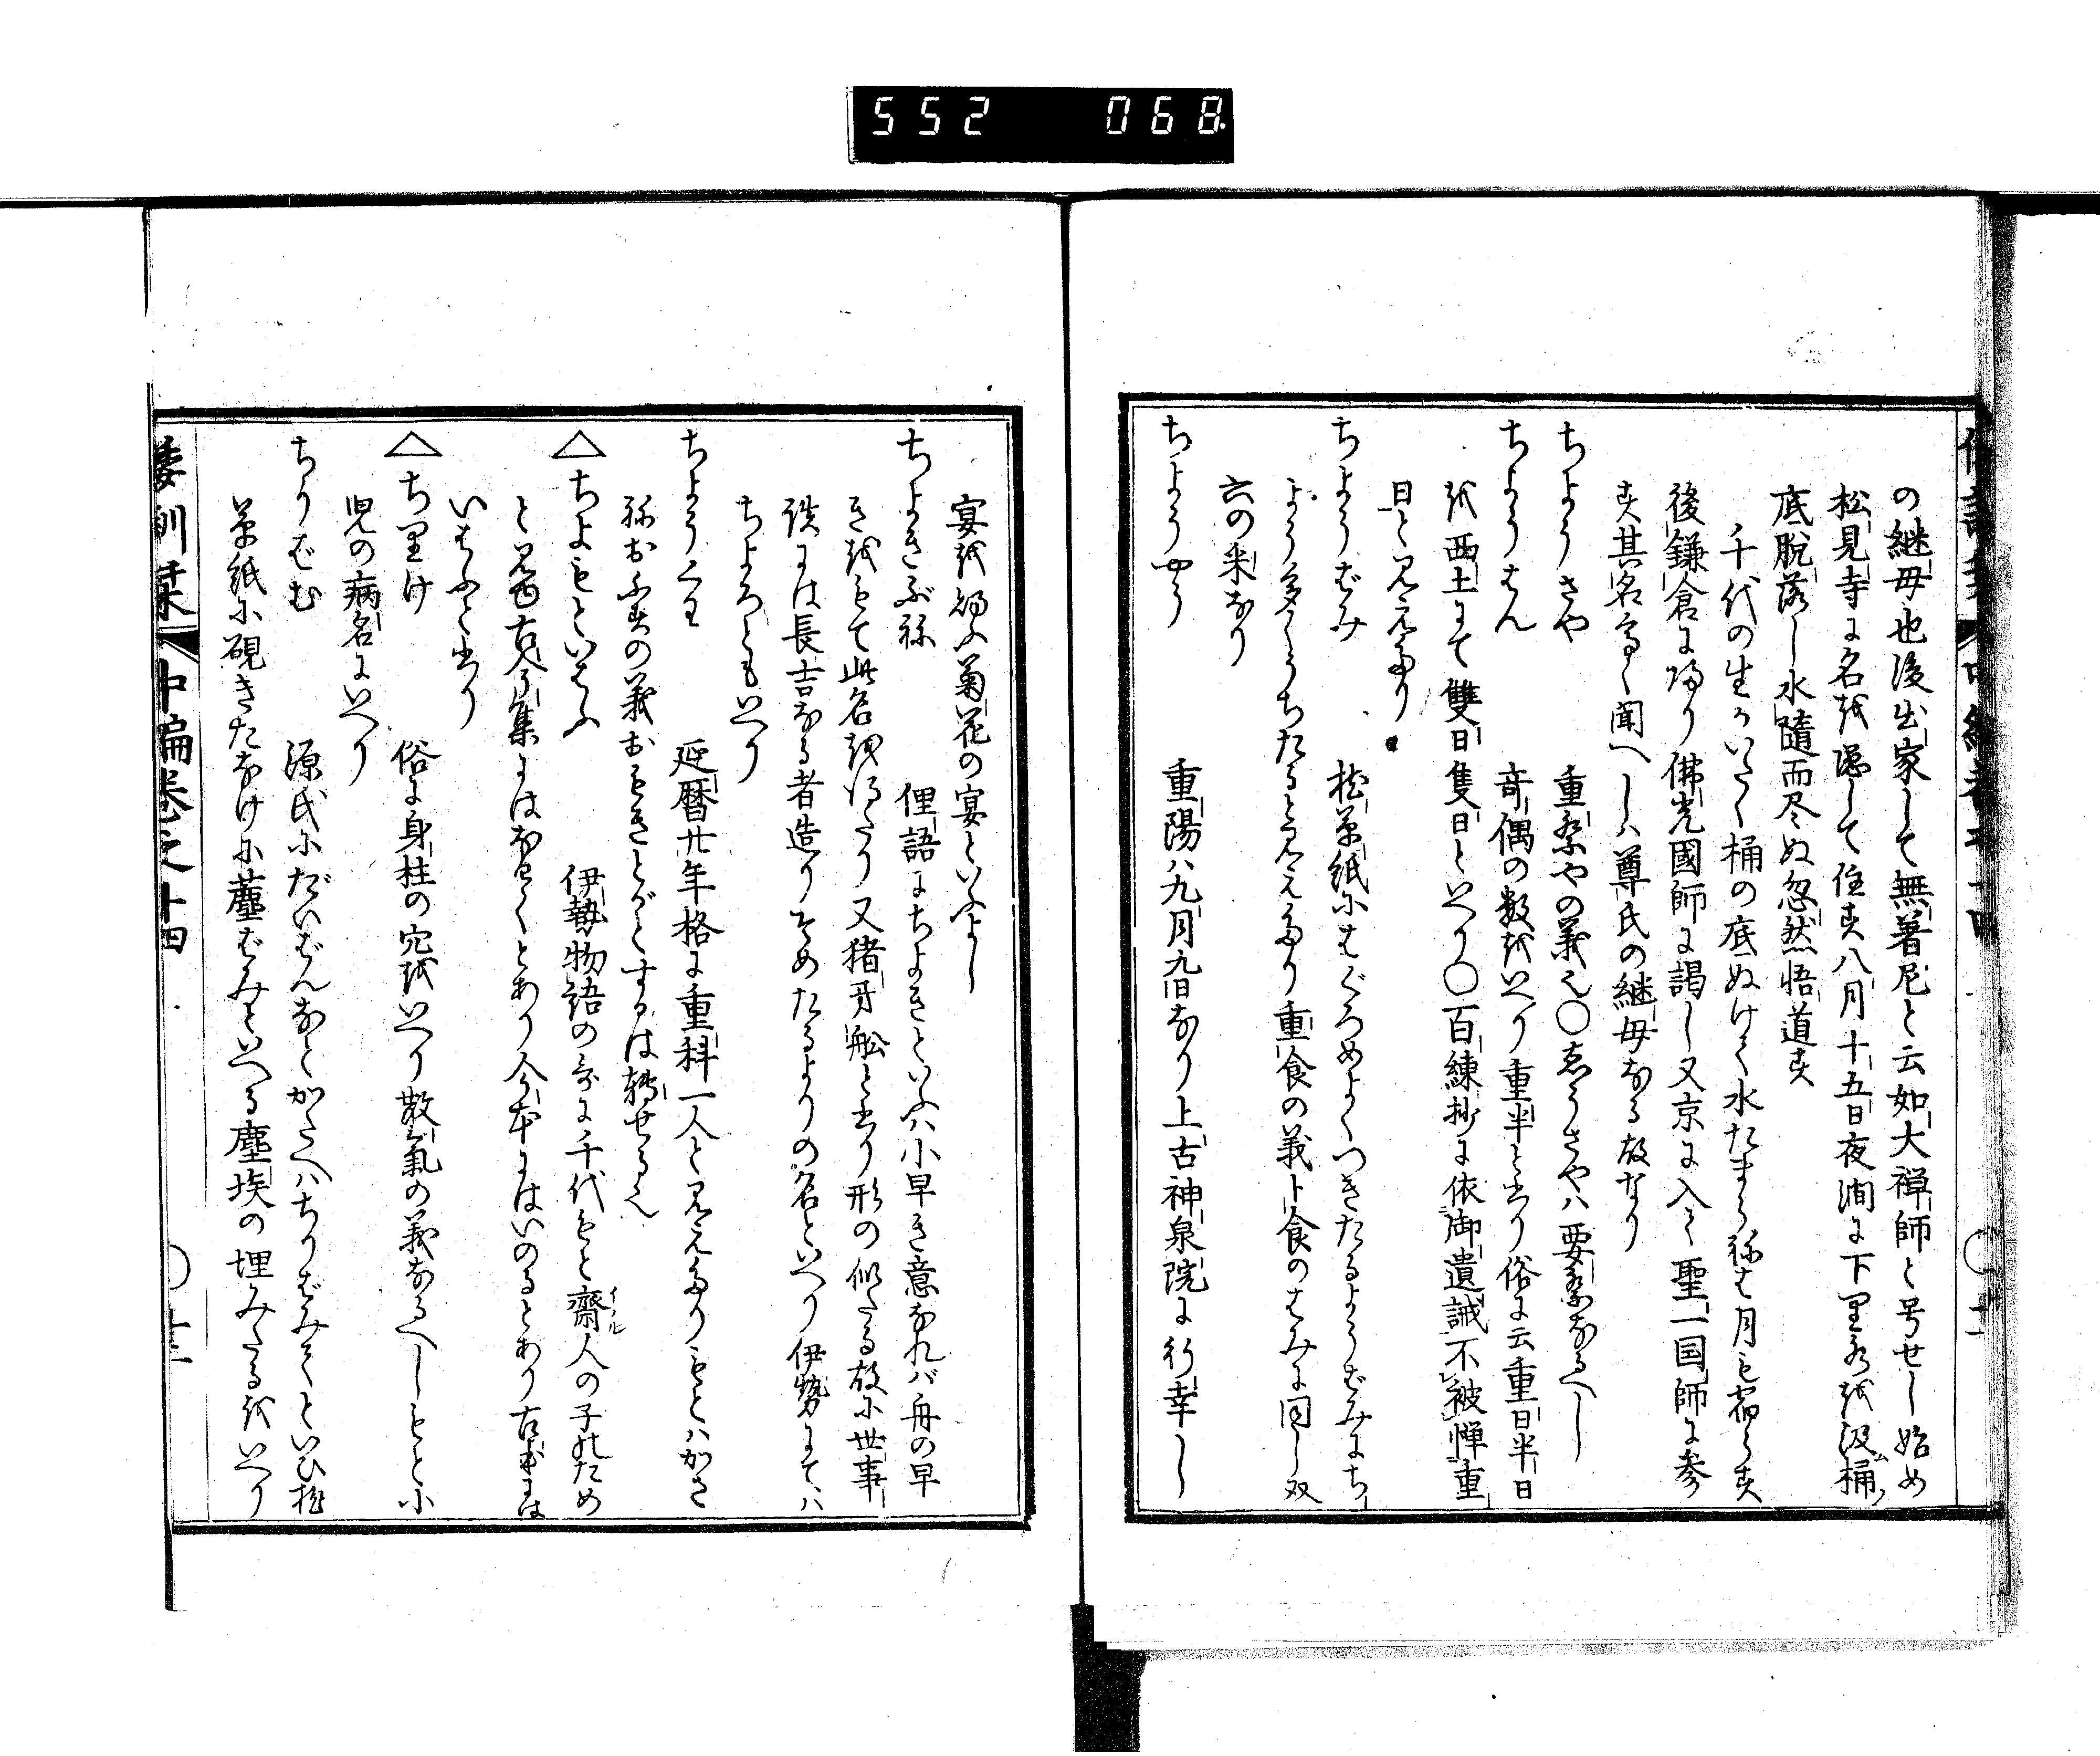 552 068
の継母也後出家して無著尼と云如大禅師と号せし始め
松見寺に名を隠して住す八月十五日夜澗に下り水を汲桶ノ
底脱落し水随而尽ぬ忽然悟道す
千代の生かいたく桶の底ぬけて水たまらねは月も宿らす
後鎌倉に帰り佛光國師に謁し又京に入て聖一国師に参
す其名高く聞へしハ尊氏の継母なる故なり
ちようさや 重祭やの義也〇ゑうさやハ要祭なるへし
ちようはん 奇偶の数をいへり重半と書り俗に云重日半日
を西土にて雙日隻日といへり〇百練抄に依御遺誡不被憚重
日と見えたり
ちようばみ 枕草紙にはぐろめよくつきたるようばみにち
よう多くうちたると見えたり重食の義ト食のはみに同し双
六の采なり
ちようやう 重陽ハ九月九日なり上古神泉院に行幸し
宴を賜ふ菊花の宴といふよし
ちよきぶね 俚語にちよきといふハ小早き意なれバ舟の早
きをもて此名を得たり又猪牙舩と書り形の似たる故に世事
談には長吉なる者造りそめたるよりの名といへり伊勢にてハ
ちよろともいへり
ちようくわ 延暦廿年格に重科一人と見えたりもとハかさ
ねおふ共の義おもきとがとするは轉せる也
△ちよもといはふ 伊勢物語の哥に千代もと齋イノル人の子のため
と見ゆ古今集にはなけくとあり今本にはいのるとあり古本には
いはふと書り
△ちりけ 俗に身柱の穴をいへり散氣の義なるへしもと小
児の病名にいへり
ちりばむ 源氏にだいばんなとかたへハちりばみてといひ枕
草紙に硯きたなけに塵ばみといへる塵埃の埋みたるをいへり
倭訓栞 中編巻之十四